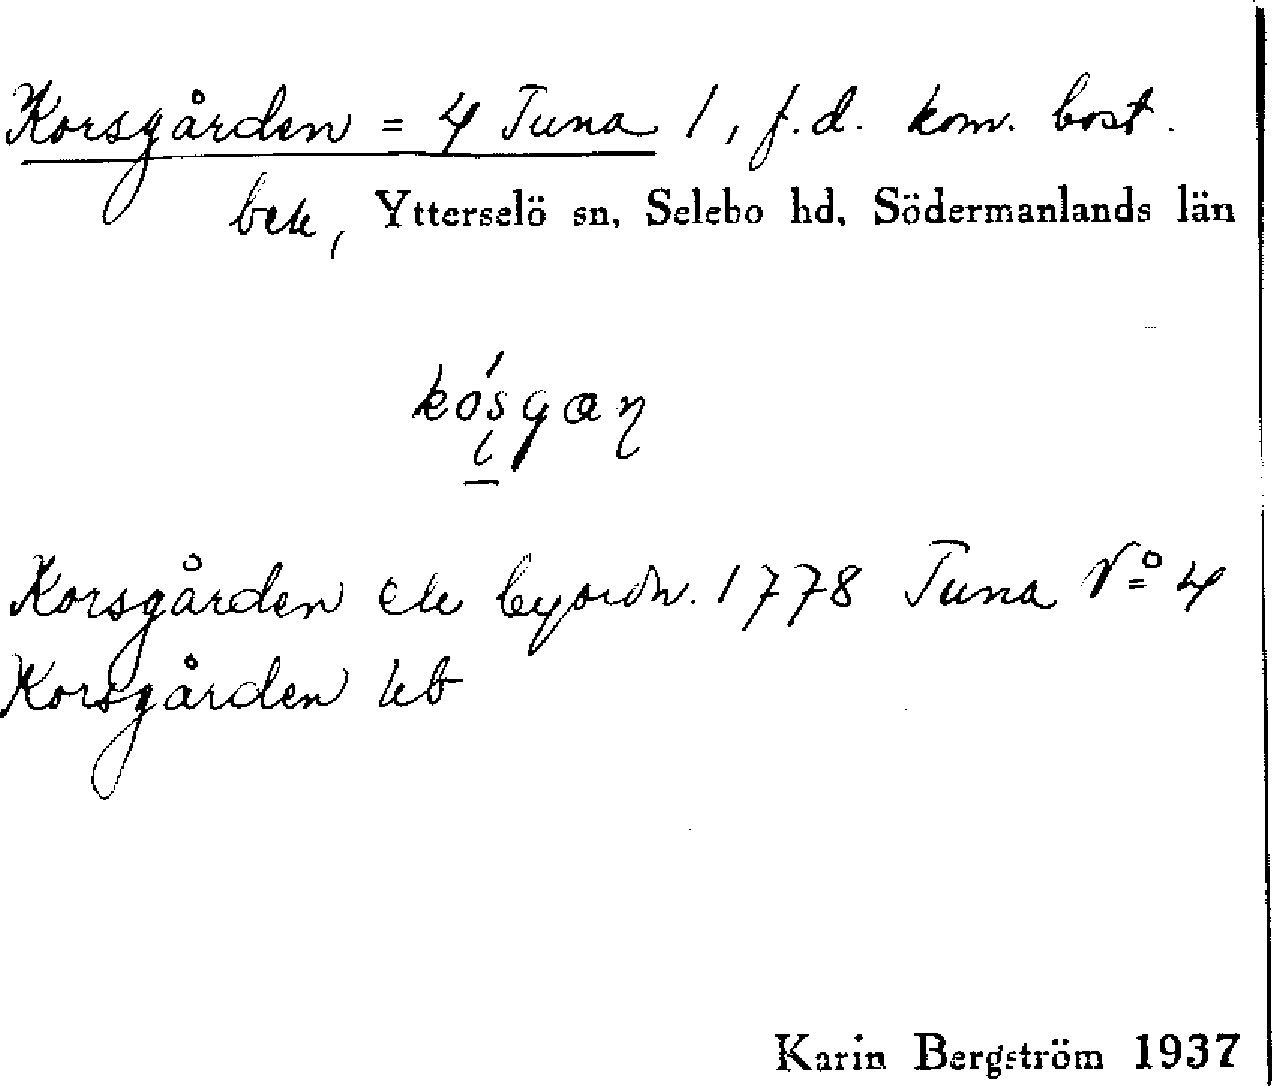 Korsgården = 4 Tuna 1, f.d. kom. bost.
Ytterselö sn, Selebo hd, Södermanlands län
Korsgården byordn. 1778 Tuna No 4
Korsgården
Karin Bergström 1937